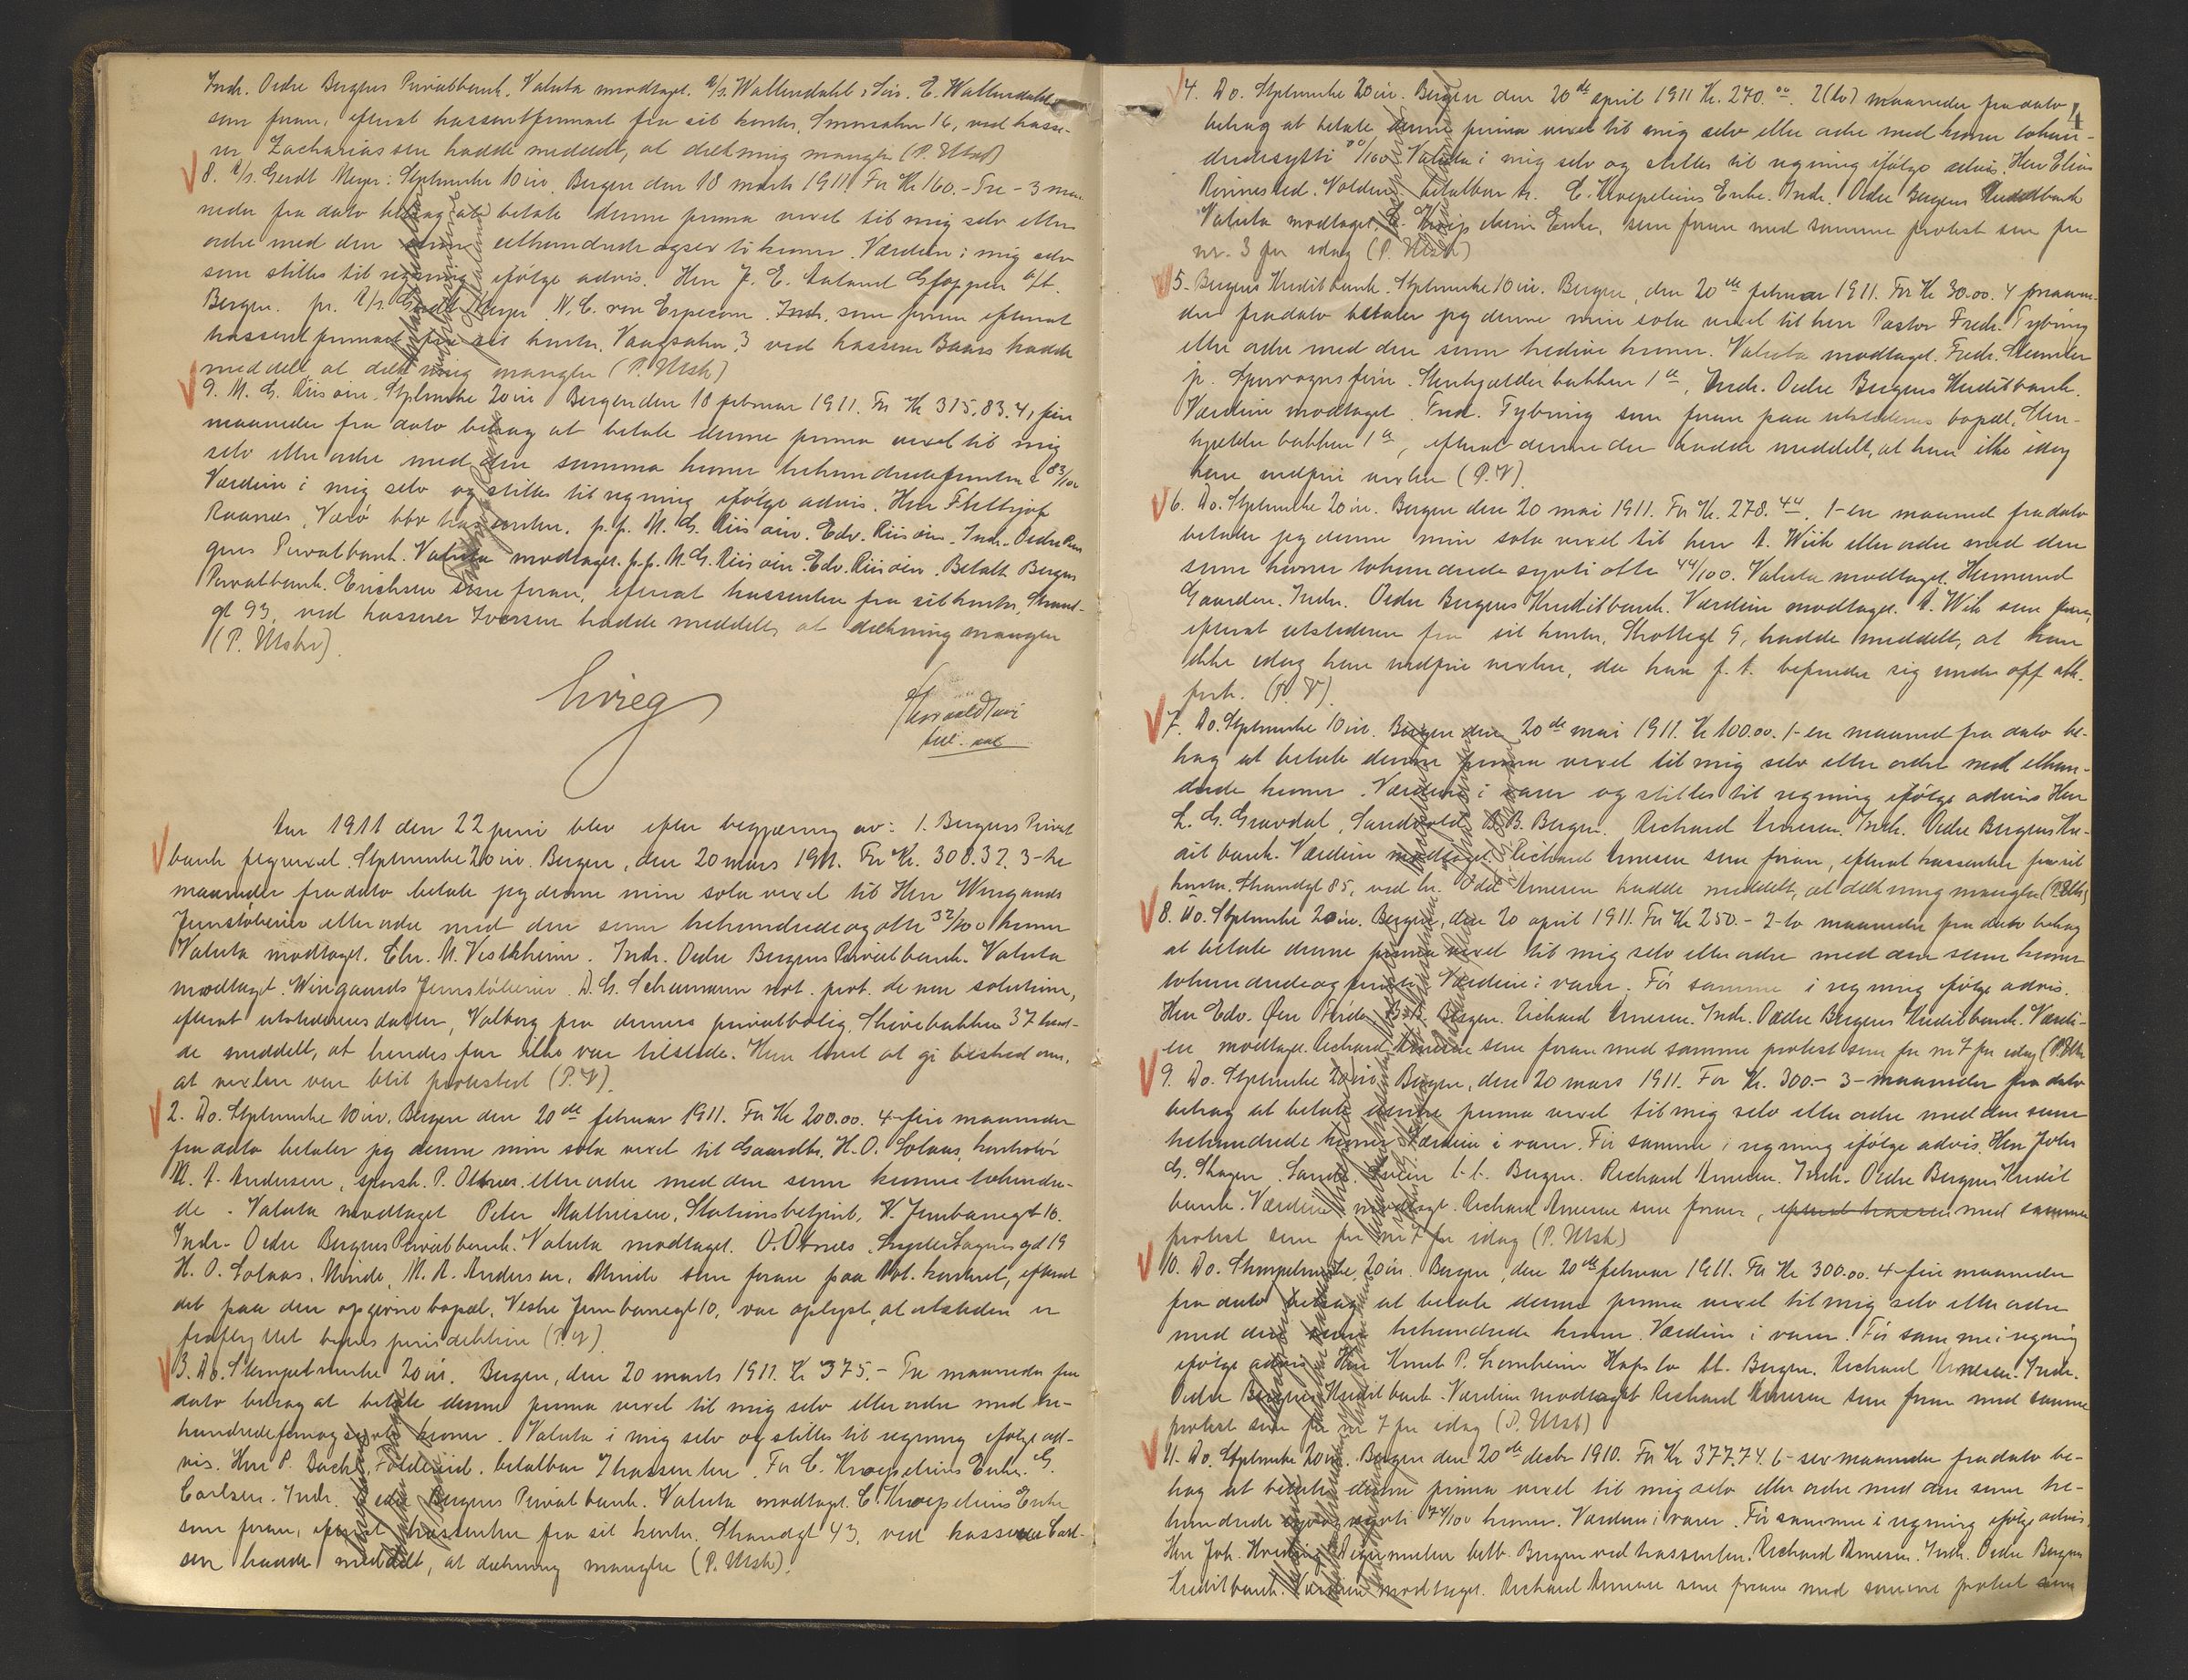 Indr. Ordre Bergens Privatbank. Valuta modtaget. A/S. Wallendahl & Søn. E. Wallendahl
som foran, efterat kassentfirmaet fra sit kontor, Smørsalm 16, ved kasse-
rer Zachariassen hadde meddelt, at dækning mangler (P. Utsh)
8. A/S. Gerdt Meyer: Stplmerke 10 øre. Bergen den 18 marts 1911. For Kr 160.- Tre - 3 maa-
neder fra dato behag at betale denne prima vexel til mig selv eller
ordre med den sum ethundrede og sexti kroner. Værdien i mig selv
som stilles til regning ifølge advis. Herr J. E. Aaland Gloppen t/t.
Bergen. pr. A/S. Gerdt Meyer N. C. von Erpecom. Indr. som foran efterat
kassentfirmaet fra sit kontor, Vaagsalm. 3 ved kasserer Baars hadde
meddelt, at dækning mangler (P. Utsh)
9. M. G. Riisøen. Stplmerke 20 øre Bergen den 18 februar 1911. For Kr 315,83. 4, fire
maaneder fra dato behag at betale denne prima vexel til mig
selv eller ordre med den summa kroner trehundredefemten & 83/100
Værdien i mig selv og stilles til regning ifølge advis. Herr Fhithjof
Raanes, Værø bbr kassenten. p.p. M. G. Riisøen. Edv. Riisøen. Indr. Ordre Ber-
gens Privatbank. Valuta modtaget. p.p. M. G. Riisøen. Edv. Riisøen. Betalt Bergens
Privatbank. Erichsen som foran, efterat kassenten fra sit kontor, Strand-
gt 93, ved kasserer Iversen hadde meddelt at dækning mangler
(P. Utsh).
Krieg
Aar 1911 den 22 juni blev efter begjæring av: 1. Bergens Privat
bank fegsvexel. Stplmerke 20 øre. Bergen, den 20 mars 1911. For Kr. 308.32. 3-tre
maaneder fra dato betale jeg denne min sola vexel til Herr Wingaards
Jernstøberier eller ordre med den sum trehundredeogotte 32/100 kroner
Valuta modtaget. Chr. M. Vestrheim. Indr. Ordre Bergens Privatbank. Valuta
modtaget. Wingaards Jernstøberier. D. G. Schumann not. prot. de non solutione,
efterat utstederens datter, Valborg fra dennes privatbolig, Skivebakken 37 had-
de meddelt, at hendes far ikke var tilstede. Hun lovet at gi besked om,
at vexlen var blit protestert (P.V).
2. Do. Stplmerke 10 øre. Bergen den 20de februar 1911. For Kr 200.00. 4-fire maaneder
fra dato betaler jeg denne min sola vexel til Gaardbr. H. O. Solaas, kontorist
M. A. Andersen, sporsk. P. Otnes eller ordre med den sum kroner tohundre-
de. Valuta modtaget Peter Mathiesen, Stationsbetjent, V. Jernbanegt 10.
Indr. Ordre Bergens Privatbank. Valuta modtaget. O. Otnes. Lyder Sagens gd 19
H. O. Solaas, Minde, M. A. Andersen, Minde som foran paa Not. kontoret, efterat
det paa den opgivne bopæl, Vestre Jernbanegt 10, var oplyst, at utsteden er
fraflyttet byens jurisdiktion (P.V).
3. Do. Stempelmerke 20 øre. Bergen, den 20 marts 1911. Kr 375.- Tre maaneder fra
dato behag at betale denne prima vexel til mig selv eller ordre med tre-
hundredefemogsyvti kroner. Valuta i mig selv og stilles til regning ifølge ad-
vis. Herr P. Bache, Foldereid, betalbar Ihassenten. For C. Kroepelins Enke. G.
Carlsen. Indr. Ordre Bergens Privatbank. Valuta modtaget. C. Kroepelins Enke
som foran, efterat kassenten fra sit kontor. Strandgt 43, ved kasserer Carl-
sen hadde meddelt, at dækning mangler (P. Utsh).
4
4. Do. Stplmerke 20 øre. Bergen den 20de april 1911 Kr. 270.00. 2(to) maaneder fra dato
behag at betale denne prima vexel til mig selv eller ordre med kroner tohun-
dredesytti 00/100. Valuta i mig selv og stilles til regning ifølge advis. Herr Elias
Rønnestad. Volden, betalbar hr. C. Kroepeliens Enke. Indr. Ordre Bergens Kreditbank
Valuta modtaget. C. Kroepeliens Enke, som foran med samme protest som for
nr. 3 for idag (P. Utsh)
5. Bergens Kreditbank. Stplmerke 10 øre. Bergen, den 20de februar 1911. For Kr 30.00. 4 maane-
der fra dato betaler jeg denne min sola vexel til herr Pastor Fredr. Tybring
eller ordre med den sum tredive kroner. Valuta modtaget. Fredr. Stemler
p. Sporvognsfører. Stenkjælderbakken 1a, Indr. Ordre Bergens Kreditbank.
Værdien modtaget. Fred. Tybring som foran paa utstederens bopæl, Sten-
kjælderbakken 1a, efterat denne der hadde meddelt, at han ikke idag
kan indfri vexlen (P.V).
6. Do. Stplmerke 20 øre. Bergen den 20 mai 1911. For Kr. 278.44. 1-en maaned fra dato
betaler jeg denne min sola vexel til herr A. Wiik eller ordre med den
sum kroner tohundrede sytti otte 44/100. Valuta modtaget. Hermund
Gaarden. Indr. Ordre Bergens Kreditbank. Værdien modtaget. A. Wiik som foran,
efterat utstederen fra sit kontor, Skottegt 9, hadde meddelt, at han
ikke idag kan indfri vexlen, da han f. t. befinder sig under off. akk-
ford. (P.V).
7. Do. Stplmerke 10 øre. Bergen den 20de mai 1911. Kr 100.00. 1-en maaned fra dato be-
hag at betale denne prima vexel til mig selv eller ordre med ethun-
drede kroner. Værdien i varer og stilles til regning ifølge advis Herr
L. G. Gravdal, Sandvold B.B. Bergen. Richard Arnesen. Indr. Ordre Bergens Kre-
ditbank. Værdien modtaget. Richard Arnesen som foran, efterat kassenten fra sit
kontor, Strandgt 85, ved hr. Odd Arnesen hadde meddelt, at dækning mangler (P. Utsh)
8. Do. Stplmerke 20 øre. Bergen, den 20 april 1911. For Kr 250.- 2-to maaneder fra dato behag
at betale denne prima vexel til mig selv eller ordre med den sum kroner
tohundredeogfemti. Værdien i varer. Før samme i regning ifølge advis.
Herr Edv. Øen Førde B.B. Bergen. Richard Arnesen. Indr. Ordre Bergens Kreditbank. Værdi-
en modtaget. Richard Arnesen som foran med samme protest som for nr 7 for idag (P. Utsh
9. Do. Stplmerke 20 øre. Bergen, den 20 mars 1911. For Kr. 300.- 3-maaneder fra dato
behag at betale denne prima vexel til mig selv eller ordre med den sum
trehundrede kroner. Værdien i varer. Før samme i regning ifølge advis. Herr Johs
G. Skagen. Sande. b.b. Bergen. Richard Arnesen. Indr. Ordre Bergens Kredit
bank. Værdien modtaget. Richard Arnesen som foran, efterat kassen med samme
protest som for nr 7 for idag (P. Utsh)
10. Do. Stempelmerke, 20 øre. Bergen, den 20de februar 1911. For Kr 300.00. 4-fire maaneder
fra dato behag at betale denne prima vexel til mig selv eller ordre
med den sum trehundrede kroner. Værdien i varer. Før samme i regning
ifølge advis Herr Knut P. Lemheim Hafslo bt. Bergen. Richard Arnesen. Indr.
Ordre Bergens Kreditbank. Værdien modtaget Richard Arnesen som foran med samme
protest som for nr 7 for idag (P. Utsh)
11. Do. Stplmerke 20 øre. Bergen den 20de decbr 1910. For Kr 377,74. 6-sex maaneder fra dato be-
hag at betale denne prima vexel til mig selv eller ordre med den sum tre-
hundrede syvogsyvti 74/100 kroner. Værdien i varer. Før samme i regning ifølge advis.
Herr Joh. betb. Bergen ved kassenten. Richard Arnesen. Indr. Ordre Bergens
Kreditbank. Værdien modtaget. Richard Arnesen som foran med samme protest som